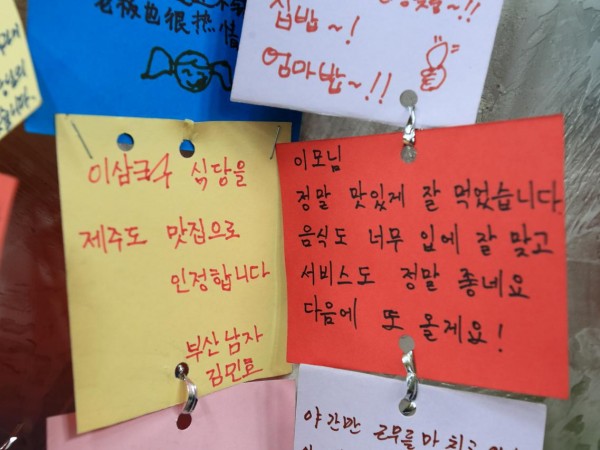 老板也很热情
집밥~!
엄마밥~!!
이삼국수 식당을
제주도 맛집으로
인정합니다
부산남자
김민호
이모님
정말 맛있게 잘 먹었습니다
음식도 너무 입에 잘 맞고
서비스도 정말 좋네요
다음에 또 올게요!
야간만 근무를 마치고